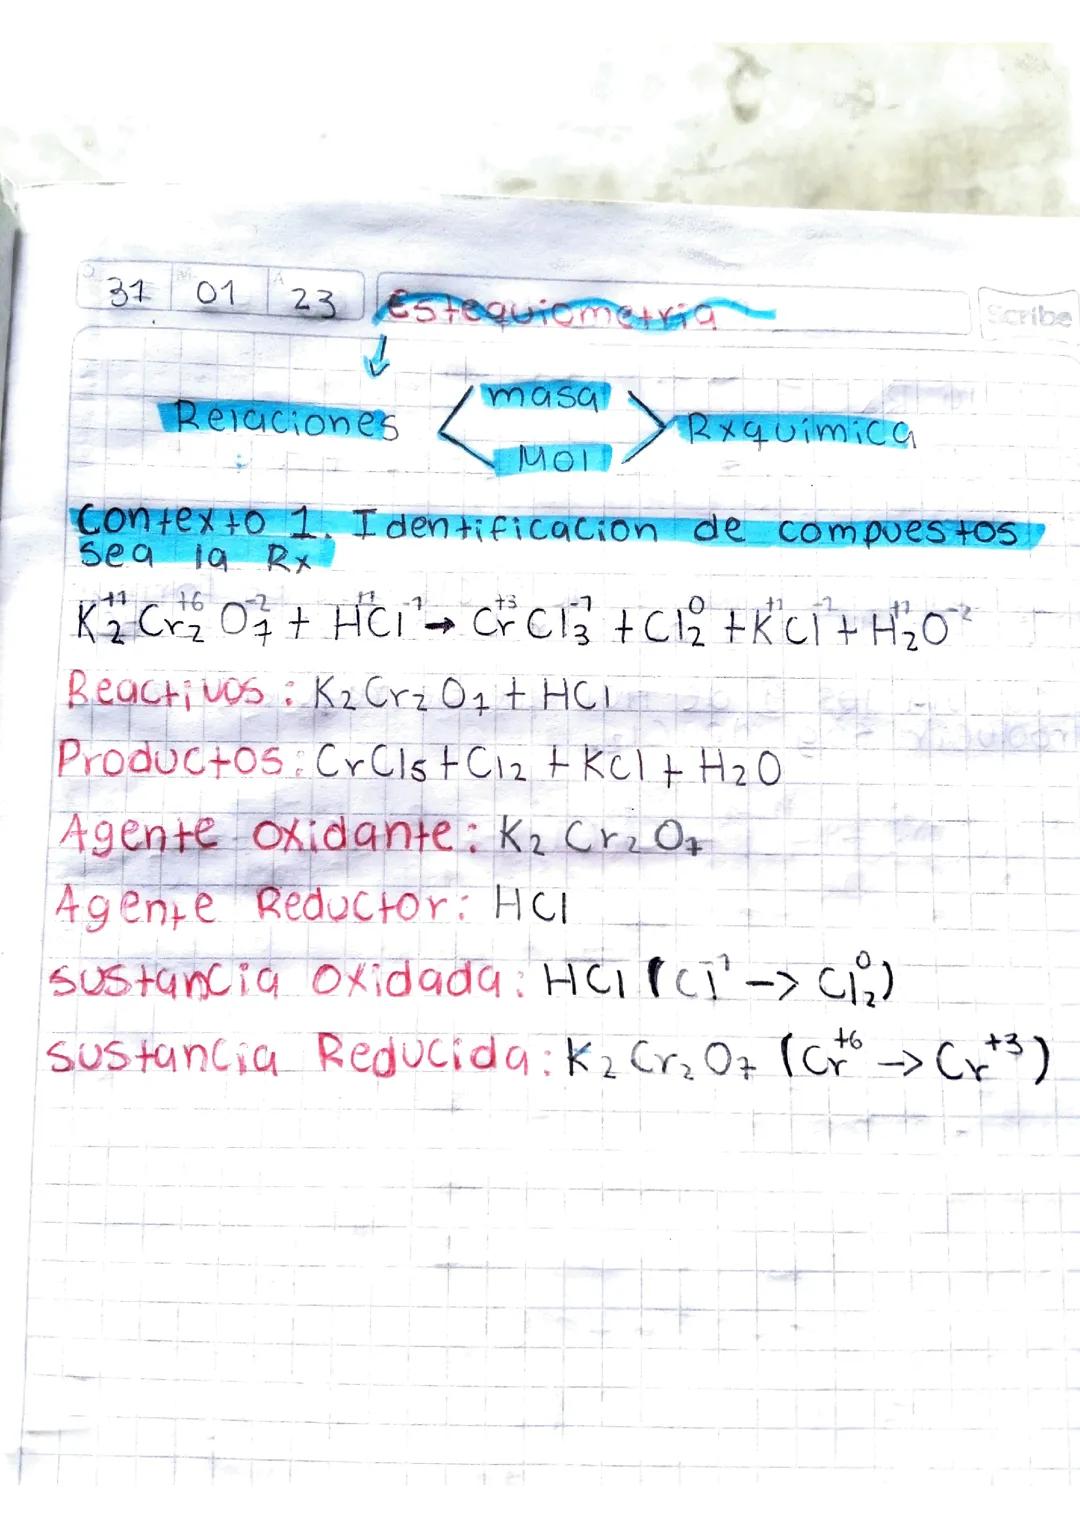 31 01 23 Estequiometria
Scribe
Relaciones masa Mol Rxquimica
Contexto 1. Identificacion de compuestos
Sea la Rx
K₂⁺¹ Cr₂⁺⁶ O₇⁻² + H⁺¹Cl⁻¹ → Cr⁺³Cl₃⁻¹ + Cl₂⁰ + K⁺¹Cl⁻¹ + H₂⁺¹O⁻²
Reactivos: K₂Cr₂O₇ + HCl
Productos: CrCl₅ + Cl₂ + KCl + H₂O
Agente oxidante: K₂Cr₂O₇
Agente Reductor: HCl
sustancia Oxidada: HCl (Cl⁻¹ -> Cl₂⁰)
sustancia Reducida: K₂Cr₂O₇ (Cr⁺⁶ -> Cr⁺³)